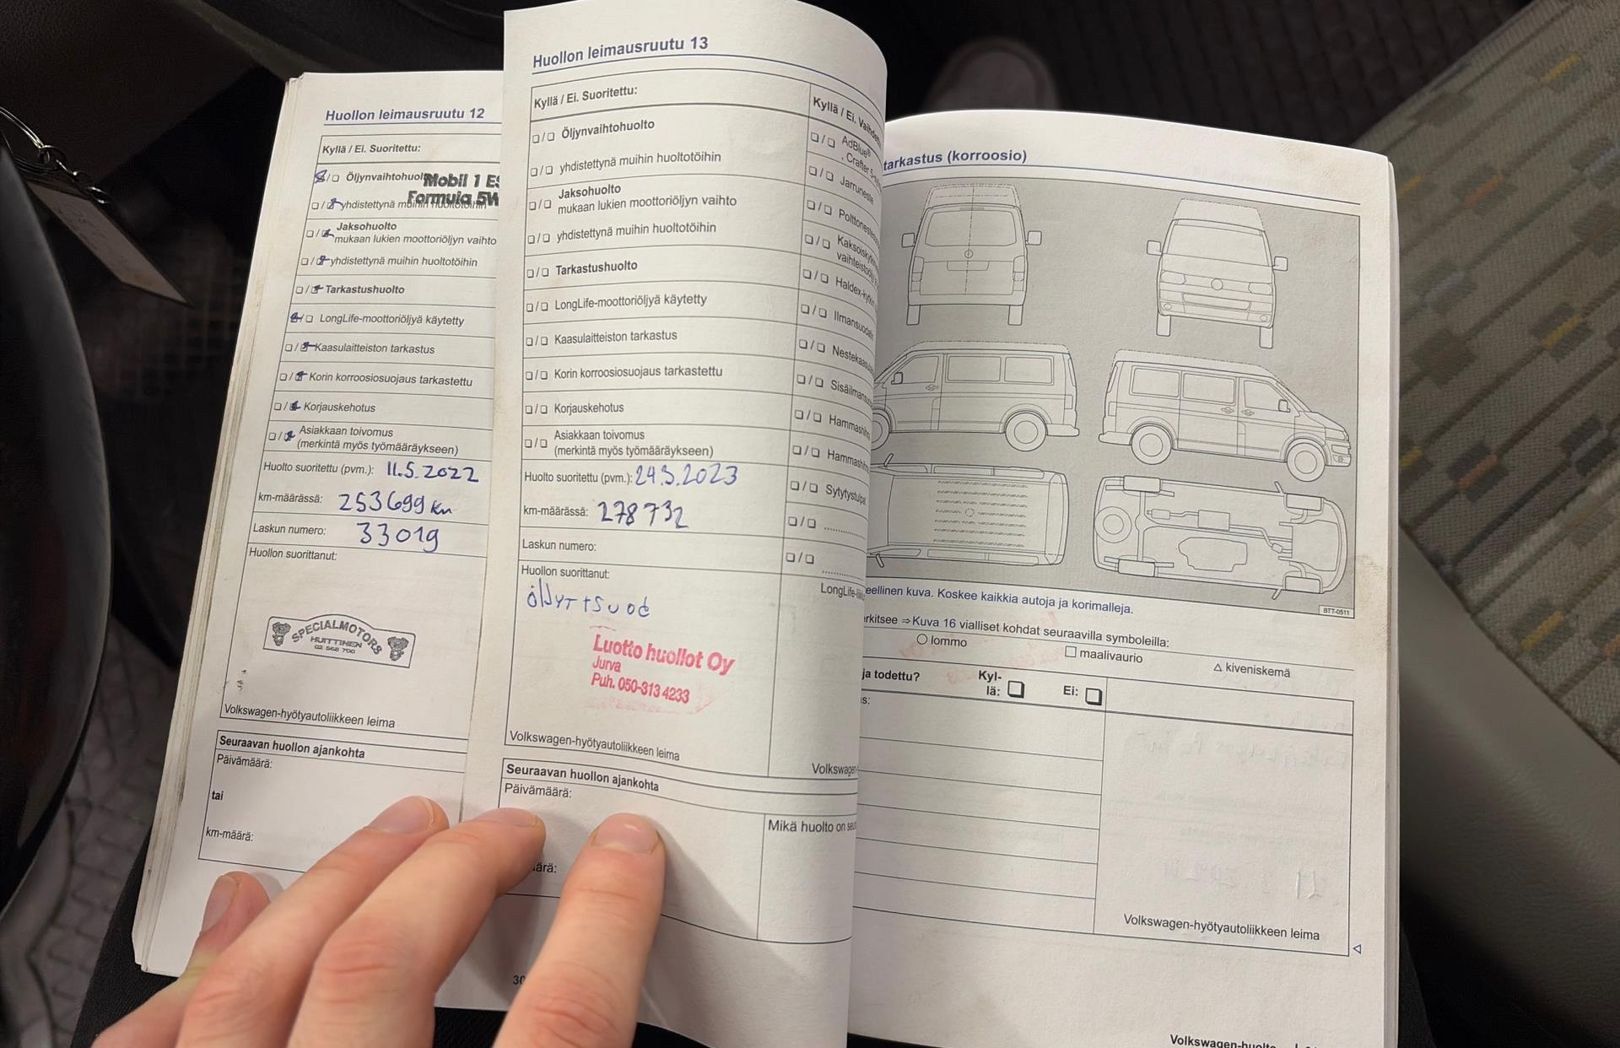 Huollon leimausruutu 12
Kyllä / Ei. Suoritettu:
Öljynvaihtohuolto
Mobil 1 ES
Formula 5W
yhdistettynä muihin huoltotöihin
Jaksohuolto
mukaan lukien moottoriöljyn vaihto
yhdistettynä muihin huoltotöihin
Tarkastushuolto
LongLife-moottoriöljyä käytetty
Kaasulaitteiston tarkastus
Korin korroosiosuojaus tarkastettu
Korjauskehotus
Asiakkaan toivomus
(merkintä myös työmääräykseen)
Huolto suoritettu (pvm.): 11.5.2022
km-määrässä: 253699 km
Laskun numero: 33019
Huollon suorittanut:
SPECIALMOTORS
HUITTINEN
02 568 700
Volkswagen-hyötyautoliikkeen leima
Seuraavan huollon ajankohta
Päivämäärä:
tai
km-määrä:
Huollon leimausruutu 13
Kyllä / Ei. Suoritettu:
Öljynvaihtohuolto
yhdistettynä muihin huoltotöihin
Jaksohuolto
mukaan lukien moottoriöljyn vaihto
yhdistettynä muihin huoltotöihin
Tarkastushuolto
LongLife-moottoriöljyä käytetty
Kaasulaitteiston tarkastus
Korin korroosiosuojaus tarkastettu
Korjauskehotus
Asiakkaan toivomus
(merkintä myös työmääräykseen)
Huolto suoritettu (pvm.): 
km-määrässä: 278732
Laskun numero:
Huollon suorittanut:
Luotto huollot Oy
Jurva
Puh. 050-313 4233
Volkswagen-hyötyautoliikkeen leima
Seuraavan huollon ajankohta
Päivämäärä:
ärä:
30
Kyllä / Ei.
AdBlue®
, Crafter
Jarruneste
Haldex-
Sytytystulpa
LongLife-
Volkswagen-
Mikä huolto on
tarkastus (korroosio)
BTT-0511
eellinen kuva. Koskee kaikkia autoja ja korimalleja.
rkitsee ⇒ Kuva 16 vialliset kohdat seuraavilla symboleilla:
○ lommo
□ maalivaurio
△ kiveniskemä
ja todettu?
Kyl-
lä:
Ei:
s:
Volkswagen-hyötyautoliikkeen leima